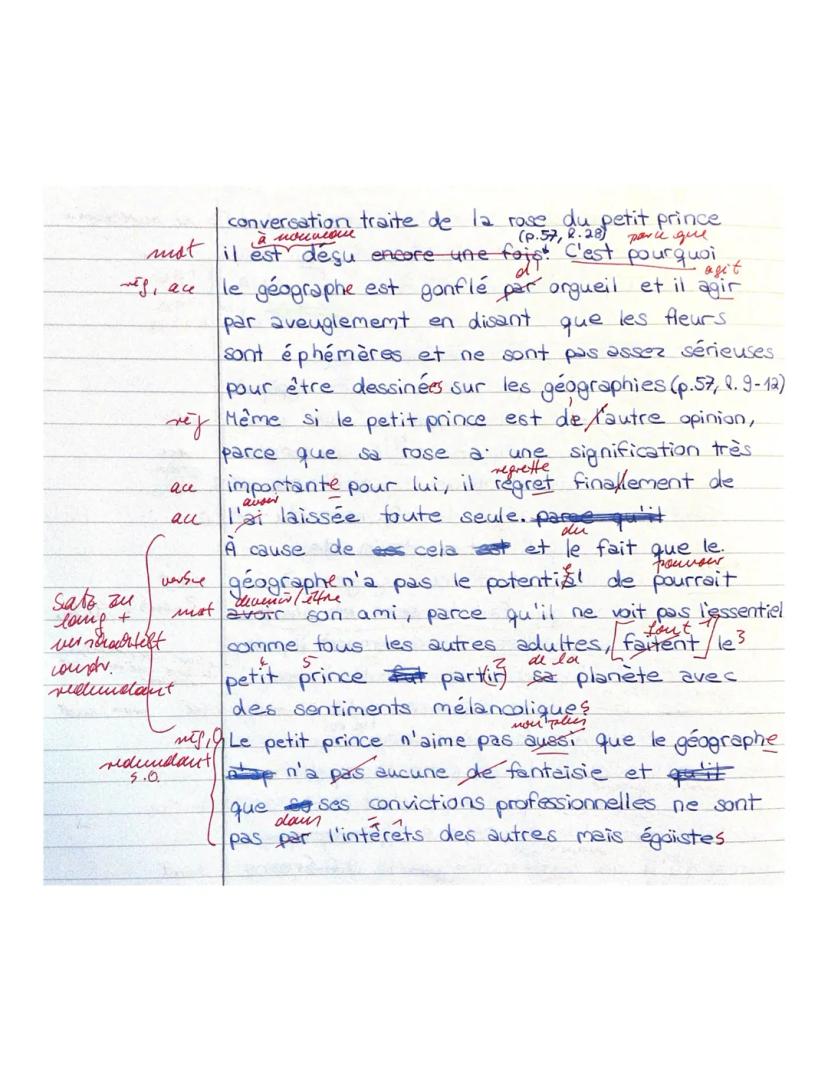 conversation traite de la rose du petit prince
à nouveau (p.57, l.28) parce que
mot il est désu encore une fois. C'est pourquoi
d' agit
rég, acc le géographe est gonflé par orgueil et il agir
par aveuglememt en disant que les fleurs
sont éphémères et ne sont pas assez sérieuses
pour être dessinées sur les géographies (p.57, l.9-12)
rég Même si le petit prince est de l'autre opinion,
parce que sa rose a une signification très
regrette
acc importante pour lui, il regret finallement de
avoir
acc l'ai laissée toute seule. parce qu'il
du
À cause de cela est et le fait que le
pouvoir
géographe n'a pas le potentiel de pourrait
devenir/être
Satz zu lang + mot avoir son ami, parce qu'il ne voit pas l'essentiel
font 1
comme tous les autres adultes, [faitent] le 3
4 5 2 de la
redundant petit prince fut partir sa planète avec
des sentiments mélancoliques
non plus
Le petit prince n'aime pas aussi que le géographe
redundant s.o. n'a pas aucune de fantaisie et qu'il
que ses convictions professionnelles ne sont
dans
pas par l'intérêts des autres mais égoïstes